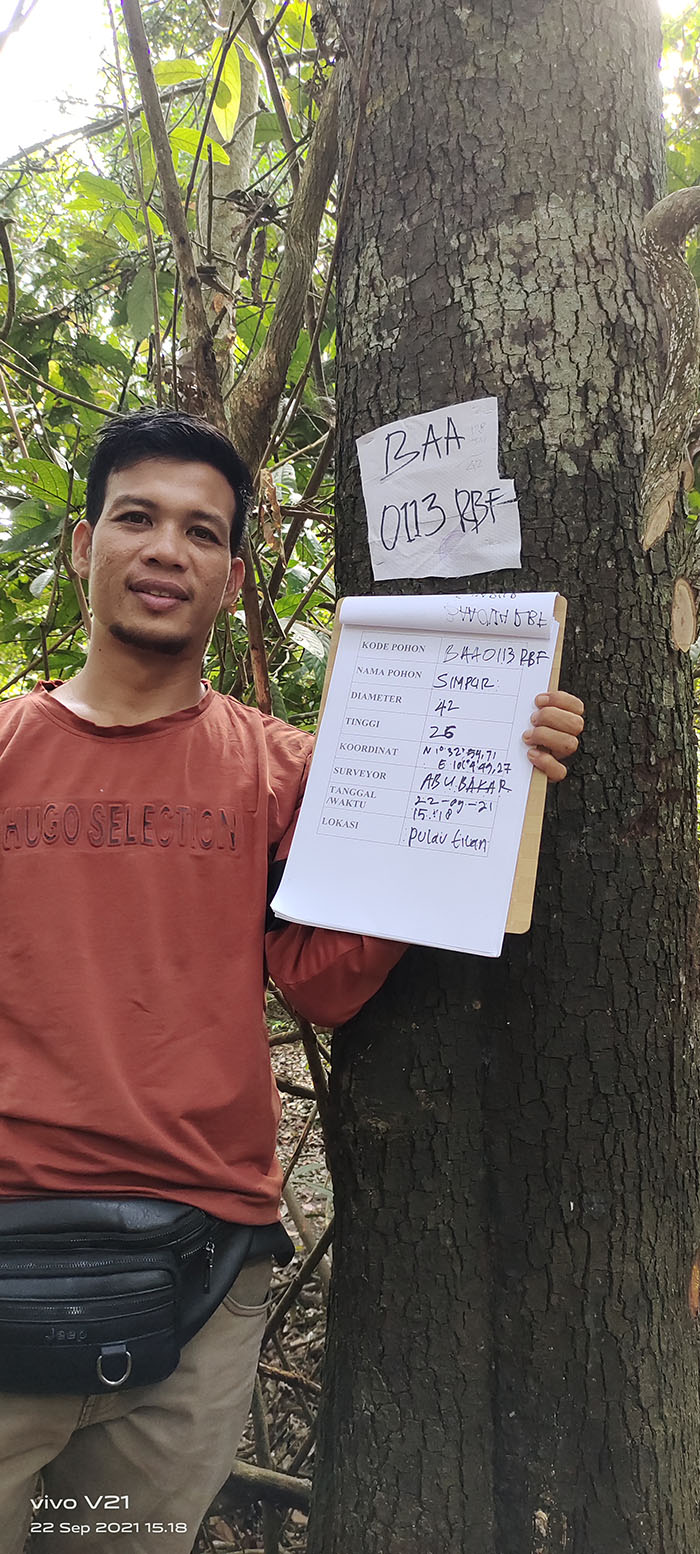 BAA
0113 RBF
KODE POHON BAA0113 RBF
NAMA POHON SIMPUR
DIAMETER 42
TINGGI 26
KOORDINAT N 1° 32' 54,71
E 101° 4' 49,27
SURVEYOR ABU BAKAR
TANGGAL 22-09-21
/WAKTU 15:18
LOKASI Pulau
HUGO SELECTION
Jeep
vivo V21
22 Sep 2021 15.18